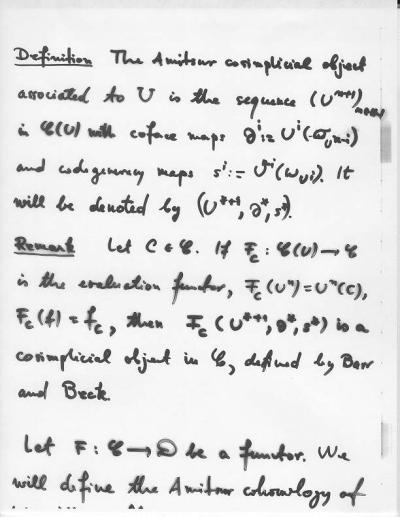 Definition The Amitsur cosimplicial object
associated to U is the sequence (U^{n+1})_{n∈ℕ}
in 𝒞(U) with coface maps ∂^i := U^i(ϖ_{U^{n-i}})
and codegeneracy maps s^i := U^i(ω_{U^i}). It
will be denoted by (U^{*+1}, ∂^*, s^*).
Remark Let C ∈ 𝒞. If F_C : 𝒞(U) → 𝒞
is the evaluation functor, F_C(U^n) = U^n(C),
F_C(f) = f_C, then F_C(U^{*+1}, ∂^*, s^*) is a
cosimplicial object in 𝒞, defined by Barr
and Beck.
Let F : 𝒞 → 𝒟 be a functor. We
will define the Amitsur cohomology of